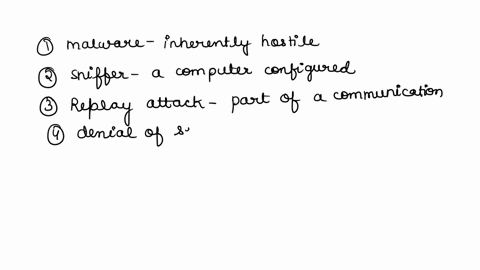 ① malware - inherently hostile
② sniffer - a computer configured
③ Replay attack - part of a communication
④ denial of s